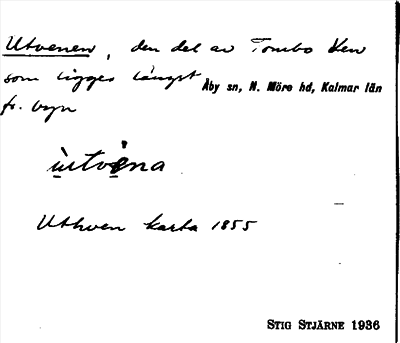 Utvenen, den del av Tombo Ven
som ligger längst Åby sn, N. Möre hd, Kalmar län
fr. byn
ùtvèna
Uthven karta 1855
STIG STJÄRNE 1936